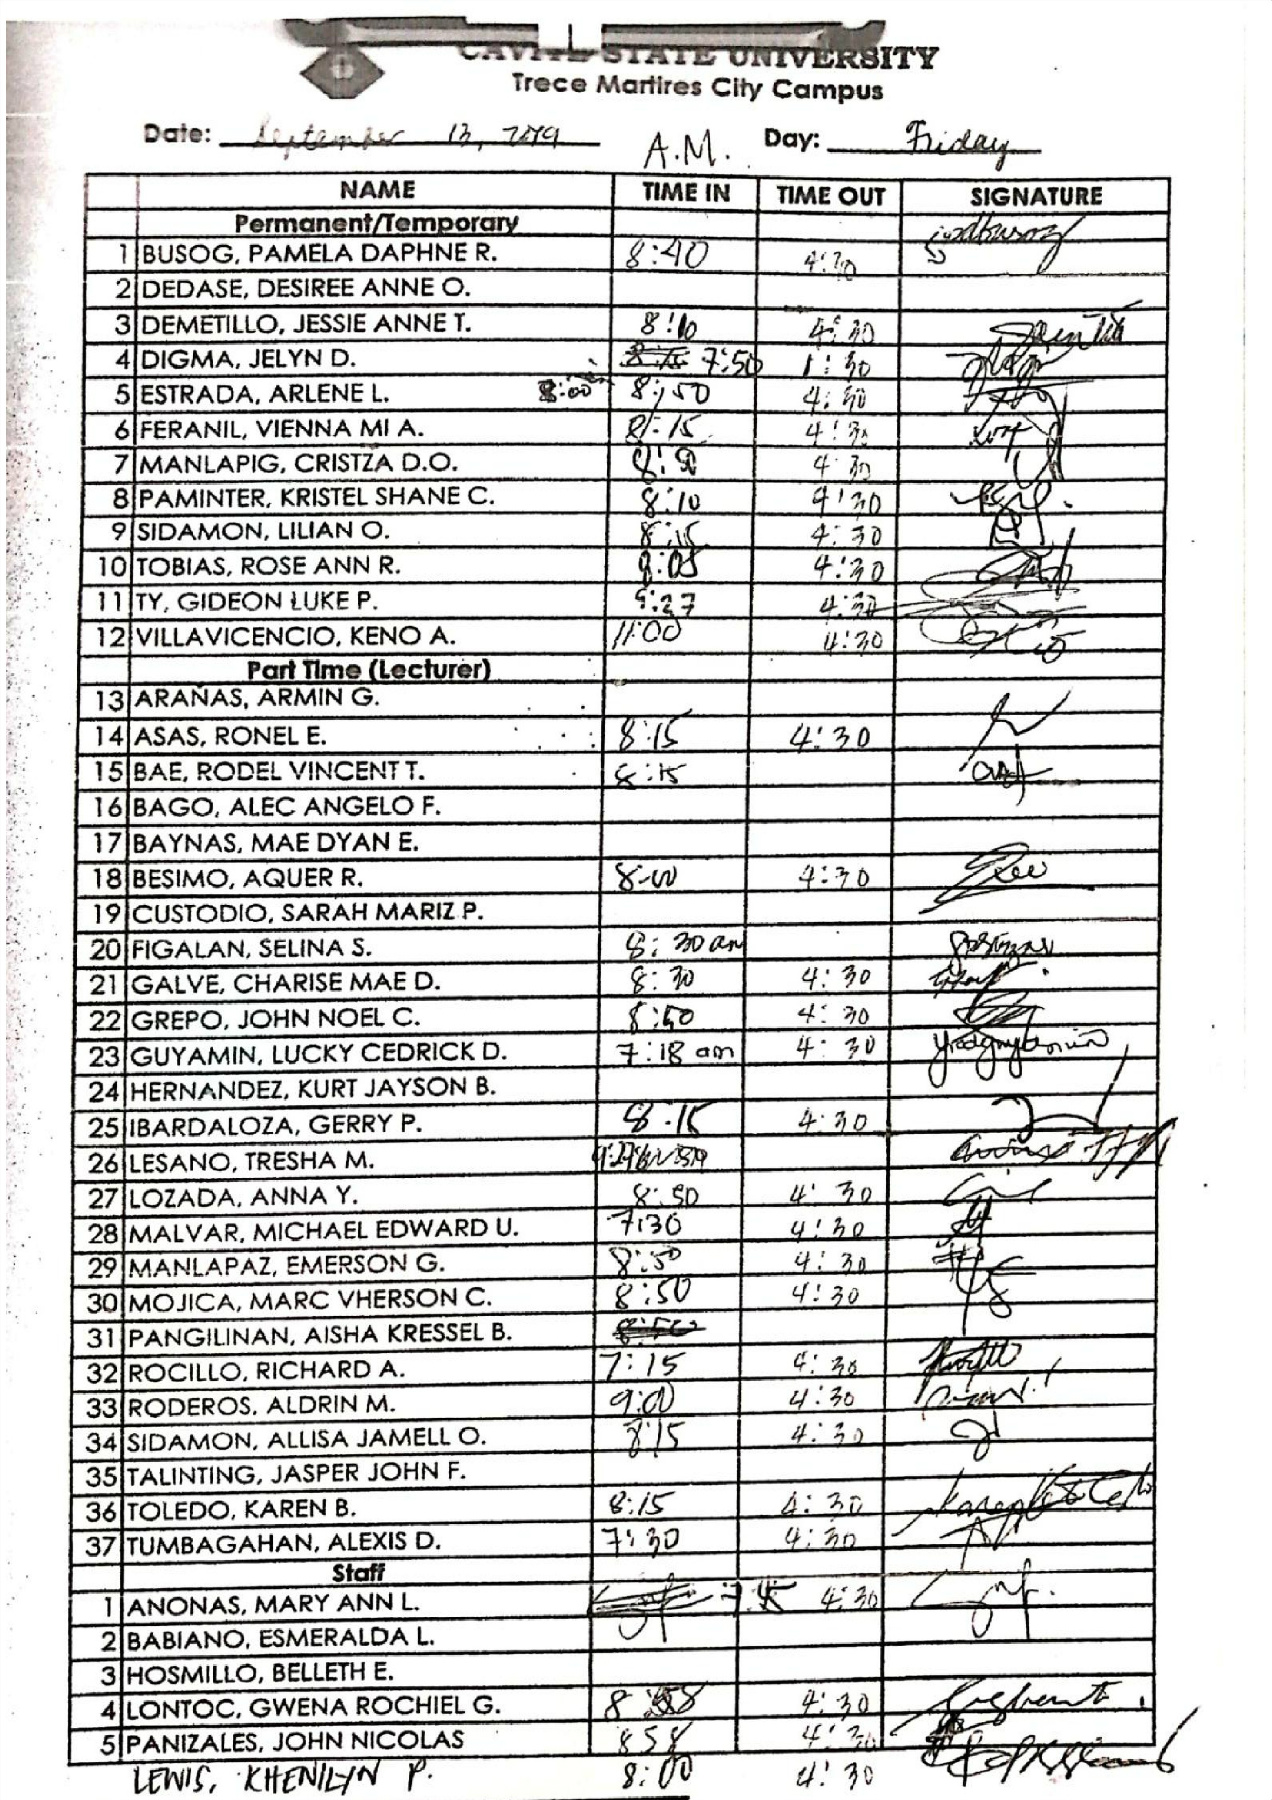 CAVITE STATE UNIVERSITY
Trece Martires City Campus
Date: September 13, 2019 A.M. Day: Friday
NAME TIME IN TIME OUT SIGNATURE
Permanent/Temporary
1 BUSOG, PAMELA DAPHNE R. 8:40 4:30
2 DEDASE, DESIREE ANNE O.
3 DEMETILLO, JESSIE ANNE T. 8:10 4:30
4 DIGMA, JELYN D. 7:50 1:30
5 ESTRADA, ARLENE L. 8:00 8:50 4:30
6 FERANIL, VIENNA MI A. 8:15 4:30
7 MANLAPIG, CRISTZA D.O. 4:30
8 PAMINTER, KRISTEL SHANE C. 8:10 4:30
9 SIDAMON, LILIAN O. 8:15 4:30
10 TOBIAS, ROSE ANN R. 8:05 4:30
11 TY, GIDEON LUKE P. 9:27 4:30
12 VILLAVICENCIO, KENO A. 11:00 4:30
Part Time (Lecturer)
13 ARAÑAS, ARMIN G.
14 ASAS, RONEL E. 8:15 4:30
15 BAE, RODEL VINCENT T. 8:15
16 BAGO, ALEC ANGELO F.
17 BAYNAS, MAE DYAN E.
18 BESIMO, AQUER R. 8-00 4:30
19 CUSTODIO, SARAH MARIZ P.
20 FIGALAN, SELINA S. 8:30 am
21 GALVE, CHARISE MAE D. 8:30 4:30
22 GREPO, JOHN NOEL C. 8:50 4:30
23 GUYAMIN, LUCKY CEDRICK D. 7:18 am 4:30
24 HERNANDEZ, KURT JAYSON B.
25 IBARDALOZA, GERRY P. 8:15 4:30
26 LESANO, TRESHA M.
27 LOZADA, ANNA Y. 8:50 4:30
28 MALVAR, MICHAEL EDWARD U. 7:30 4:30
29 MANLAPAZ, EMERSON G. 8:50 4:30
30 MOJICA, MARC VHERSON C. 8:50 4:30
31 PANGILINAN, AISHA KRESSEL B. 8:50
32 ROCILLO, RICHARD A. 7:15 4:30
33 RODEROS, ALDRIN M. 9:00 4:30
34 SIDAMON, ALLISA JAMELL O. 8:15 4:30
35 TALINTING, JASPER JOHN F.
36 TOLEDO, KAREN B. 8:15 4:30
37 TUMBAGAHAN, ALEXIS D. 7:30 4:30
Staff
1 ANONAS, MARY ANN L. 4:30
2 BABIANO, ESMERALDA L.
3 HOSMILLO, BELLETH E.
4 LONTOC, GWENA ROCHIEL G. 8 4:30
5 PANIZALES, JOHN NICOLAS 858 4:30
LEWIS, KHENILYN P. 8:00 4:30